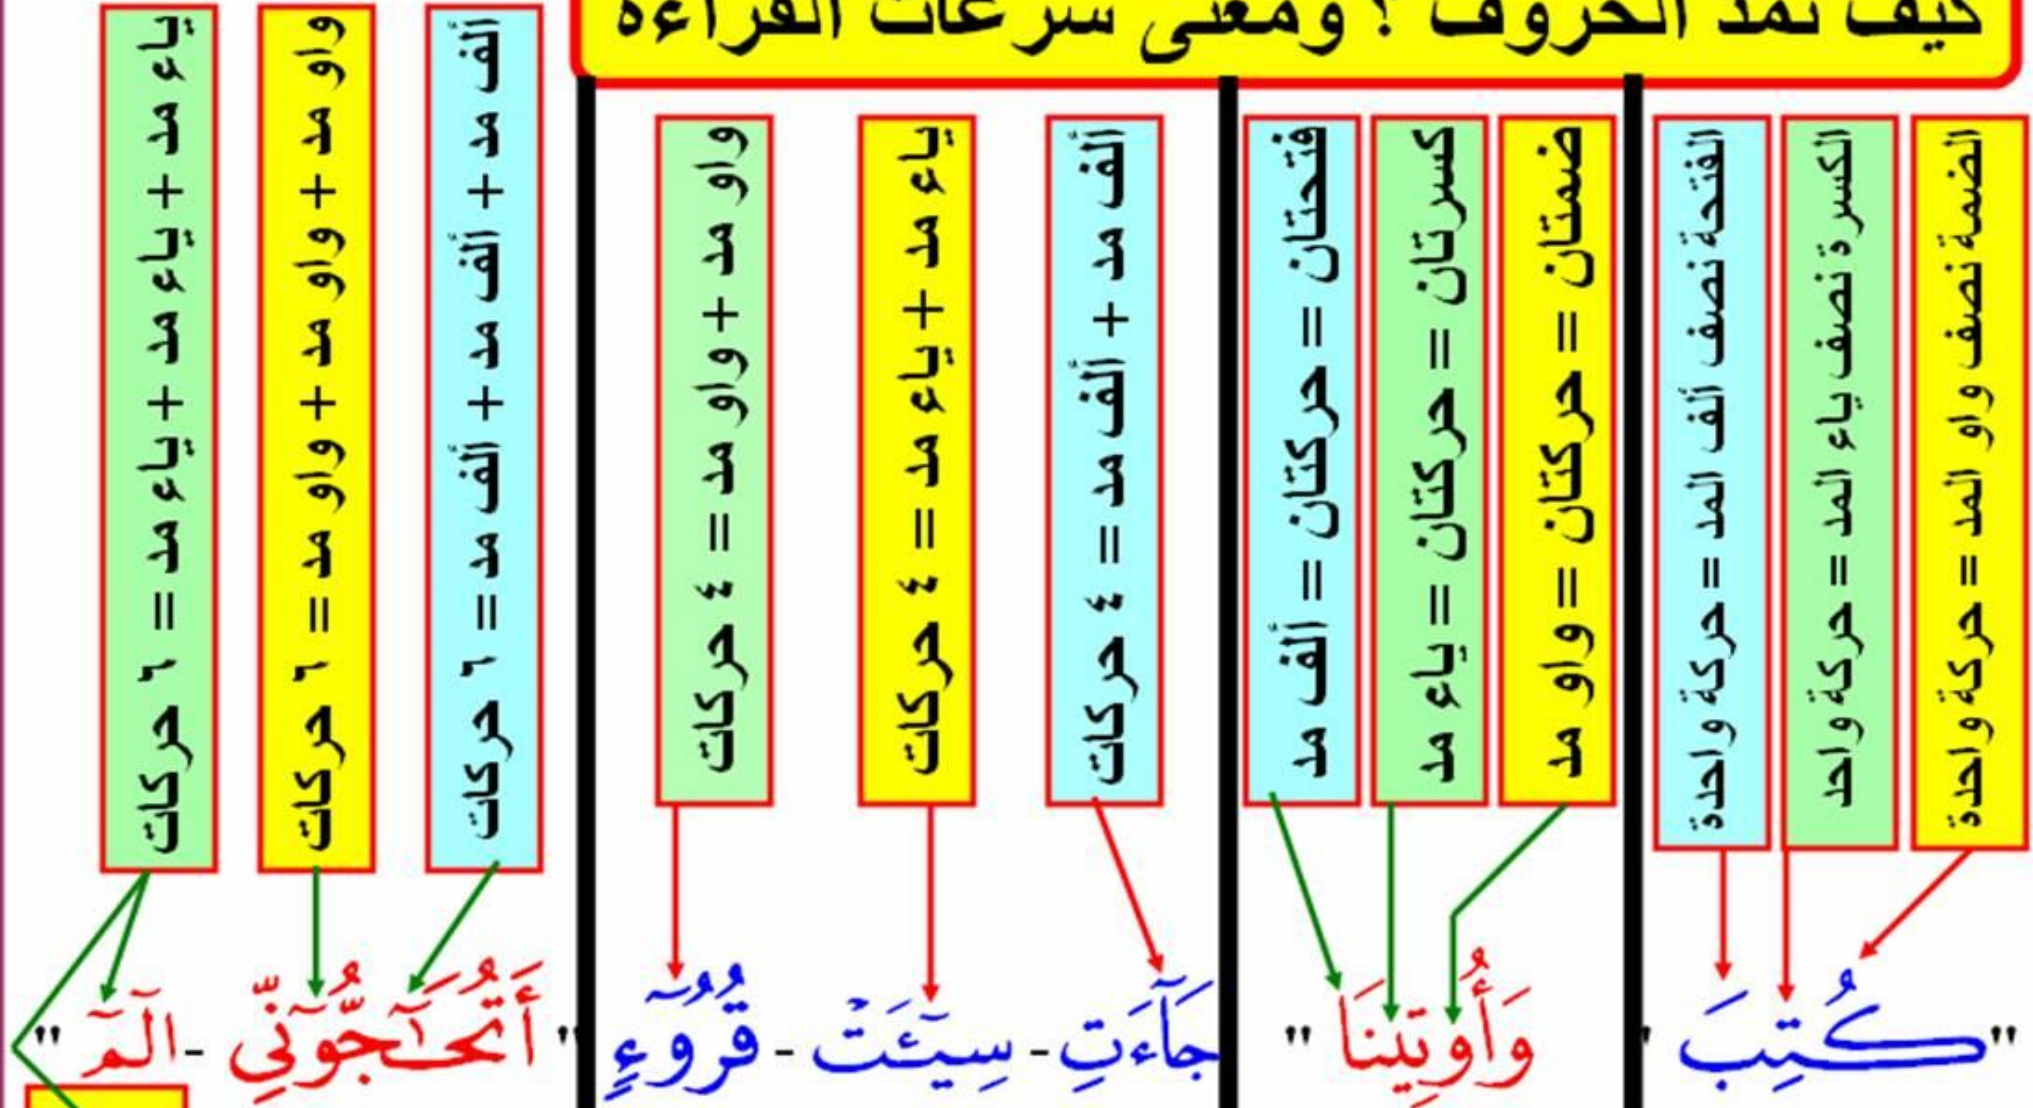 كيف نمد الحروف ؟ ومعنى سرعات القراءة
الضمة نصف واو المد = حركة واحدة
الكسرة نصف ياء المد = حركة واحد
الفتحة نصف ألف المد = حركة واحدة
"كُتِبَ"
ضمتان = حركتان = واو مد
كسرتان = حركتان = ياء مد
فتحتان = حركتان = ألف مد
وَأُوتِينَا "
ألف مد + ألف مد = ٤ حركات
ياء مد + ياء مد = ٤ حركات
واو مد + واو مد = ٤ حركات
جَآءَتِ - سِيٓـَٔتْ - قُرُوٓءٍ
ألف مد + ألف مد + ألف مد = ٦ حركات
واو مد + واو مد + واو مد = ٦ حركات
ياء مد + ياء مد + ياء مد = ٦ حركات
" أَتُحَـٰٓجُّوٓنِّي - الٓمٓ "